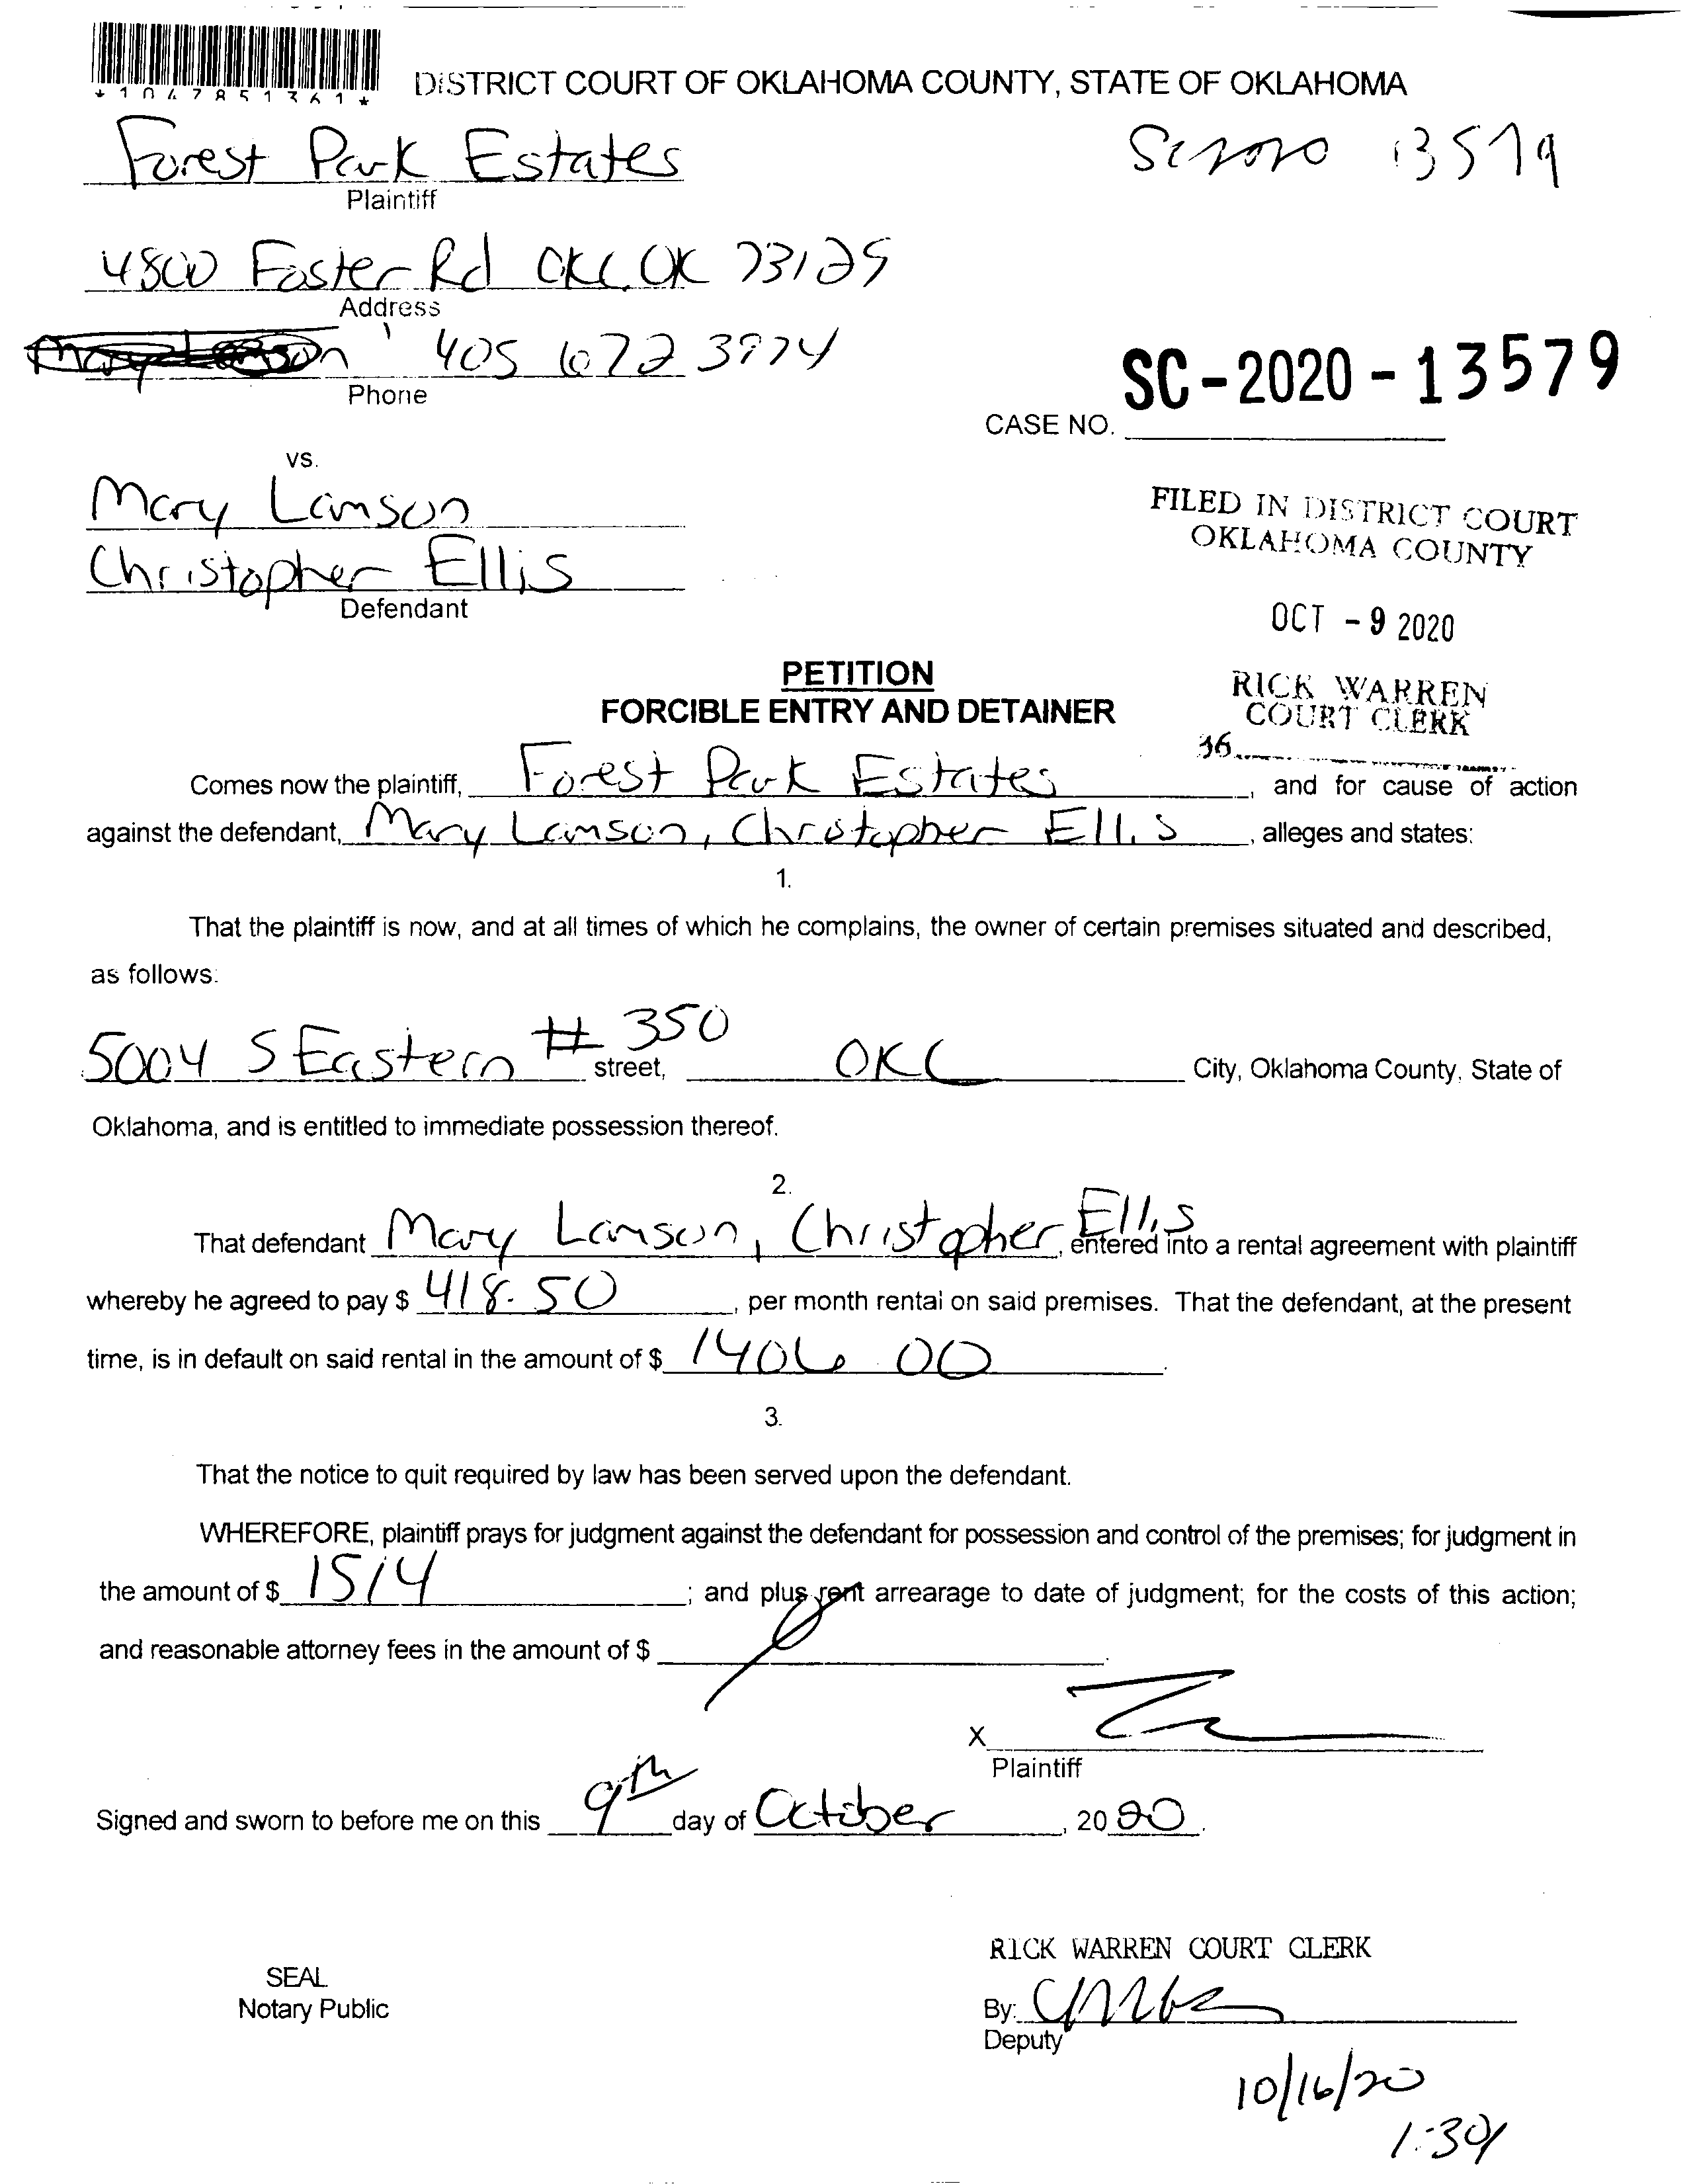 *1047851361*
DISTRICT COURT OF OKLAHOMA COUNTY, STATE OF OKLAHOMA
Forest Park Estates
Plaintiff
13579
4800 Foster Rd OKC, OK 73129
Address
405 672 3974
Phone
SC-2020-13579
CASE NO.
vs.
Mary Lamson
Christopher Ellis
Defendant
FILED IN DISTRICT COURT
OKLAHOMA COUNTY
OCT -9 2020
RICK WARREN
COURT CLERK
36
PETITION
FORCIBLE ENTRY AND DETAINER
Comes now the plaintiff, Forest Park Estates, and for cause of action
against the defendant, Mary Lamson, Christopher Ellis, alleges and states:
1.
That the plaintiff is now, and at all times of which he complains, the owner of certain premises situated and described,
as follows:
5004 S Eastern # 350 street, OKC City, Oklahoma County, State of
Oklahoma, and is entitled to immediate possession thereof.
2.
That defendant Mary Lamson, Christopher Ellis, entered into a rental agreement with plaintiff
whereby he agreed to pay $ 418.50, per month rental on said premises. That the defendant, at the present
time, is in default on said rental in the amount of $ 1406 00.
3.
That the notice to quit required by law has been served upon the defendant.
WHEREFORE, plaintiff prays for judgment against the defendant for possession and control of the premises; for judgment in
the amount of $ 1514; and plus rent arrearage to date of judgment; for the costs of this action;
and reasonable attorney fees in the amount of $
X
Plaintiff
Signed and sworn to before me on this 9th day of October, 2020.
SEAL
Notary Public
RICK WARREN COURT CLERK
By:
Deputy
10/16/20
1:30